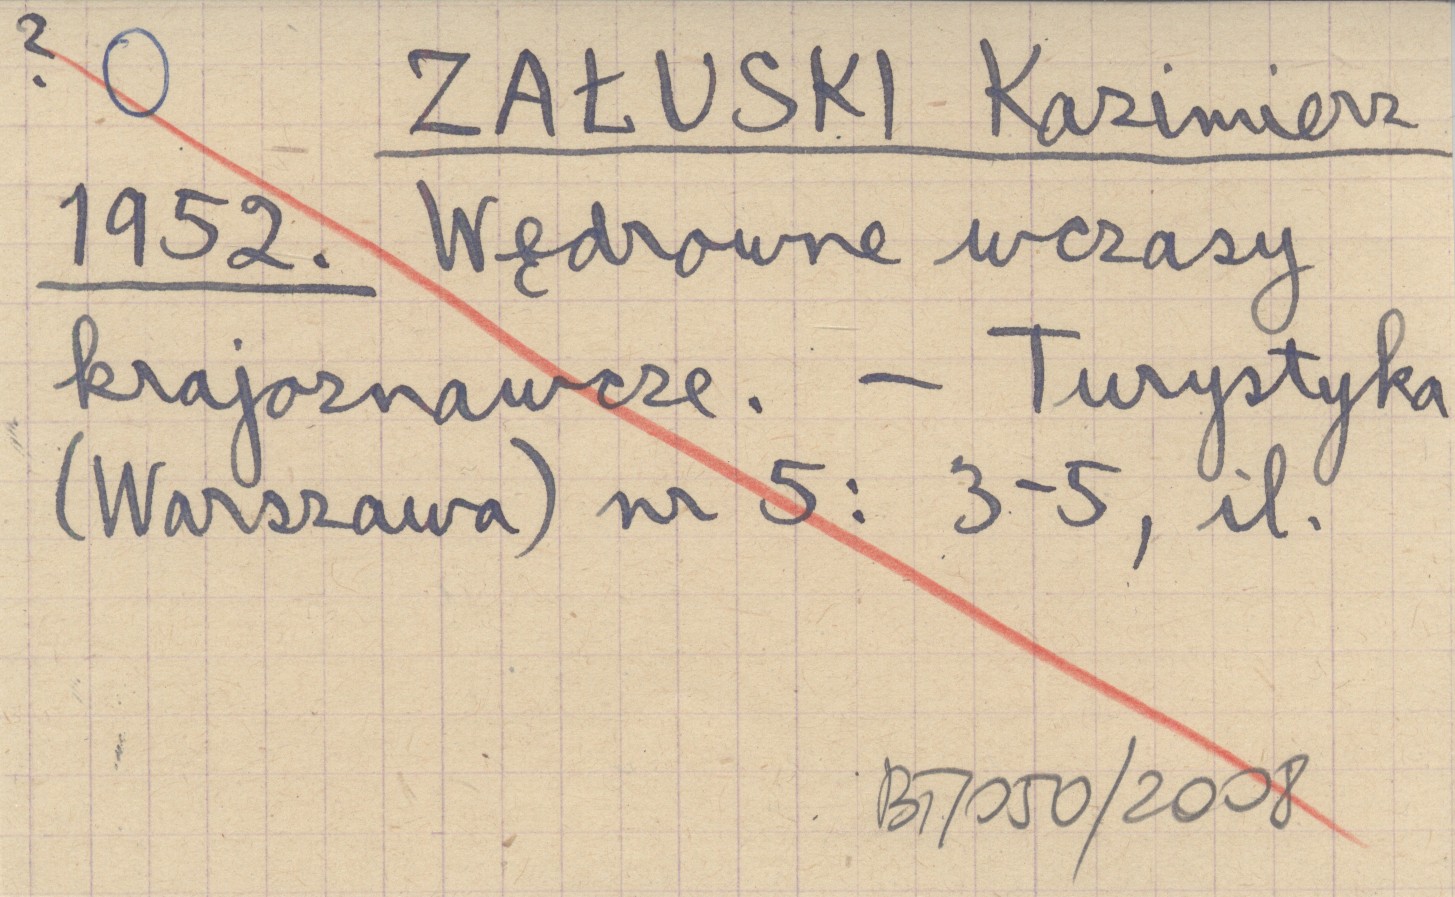 ? O ZAŁUSKI Kazimierz
1952. Wędrowne wczasy
krajoznawcze. – Turystyka
(Warszawa) nr 5: 3-5, il.
/2008